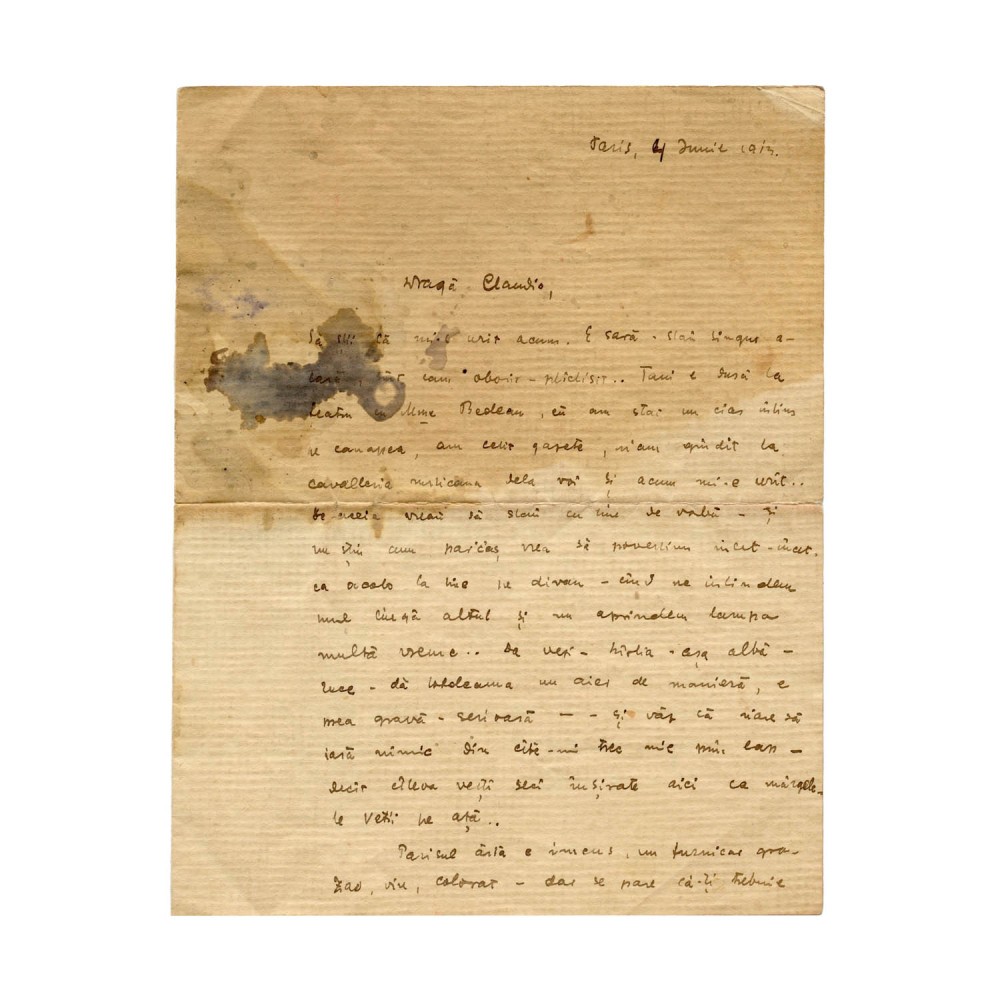 Paris, 4 Junie 191
Dragă Claudio,
Să știi că mi-e urit acum. E sară - stau singur a-
casă, sint cam obosit - plictisit.. Tani e dusă la
teatru cu Mme Bedean, eu am stat un cias intins
pe canapea, am cetit gazete, m'am gindit la
cavalleria rusticana dela voi și acum mi-e urit..
De aceia vreau să stau cu tine de vorbă - și
nu știu cum parcaș vrea să povestim incet-incet.
ca acolo la tine pe divan - cind ne intindem
unul lingă altul și nu aprindem lampa
multă vreme.. Da vezi - hirtia - așa albă -
rece - dă totdeauna un aier de manieră, e
prea gravă - serioasă — - și văz că n'are să
iasă nimic din cite-mi trec mie prin cap -
decit citeva vești seci inșirate aici ca mărgele-
le Vetii pe ață..
Parisul ăsta e imens, un furnicar gro-
zav, viu, colorat - dar se pare că-ți trebuie